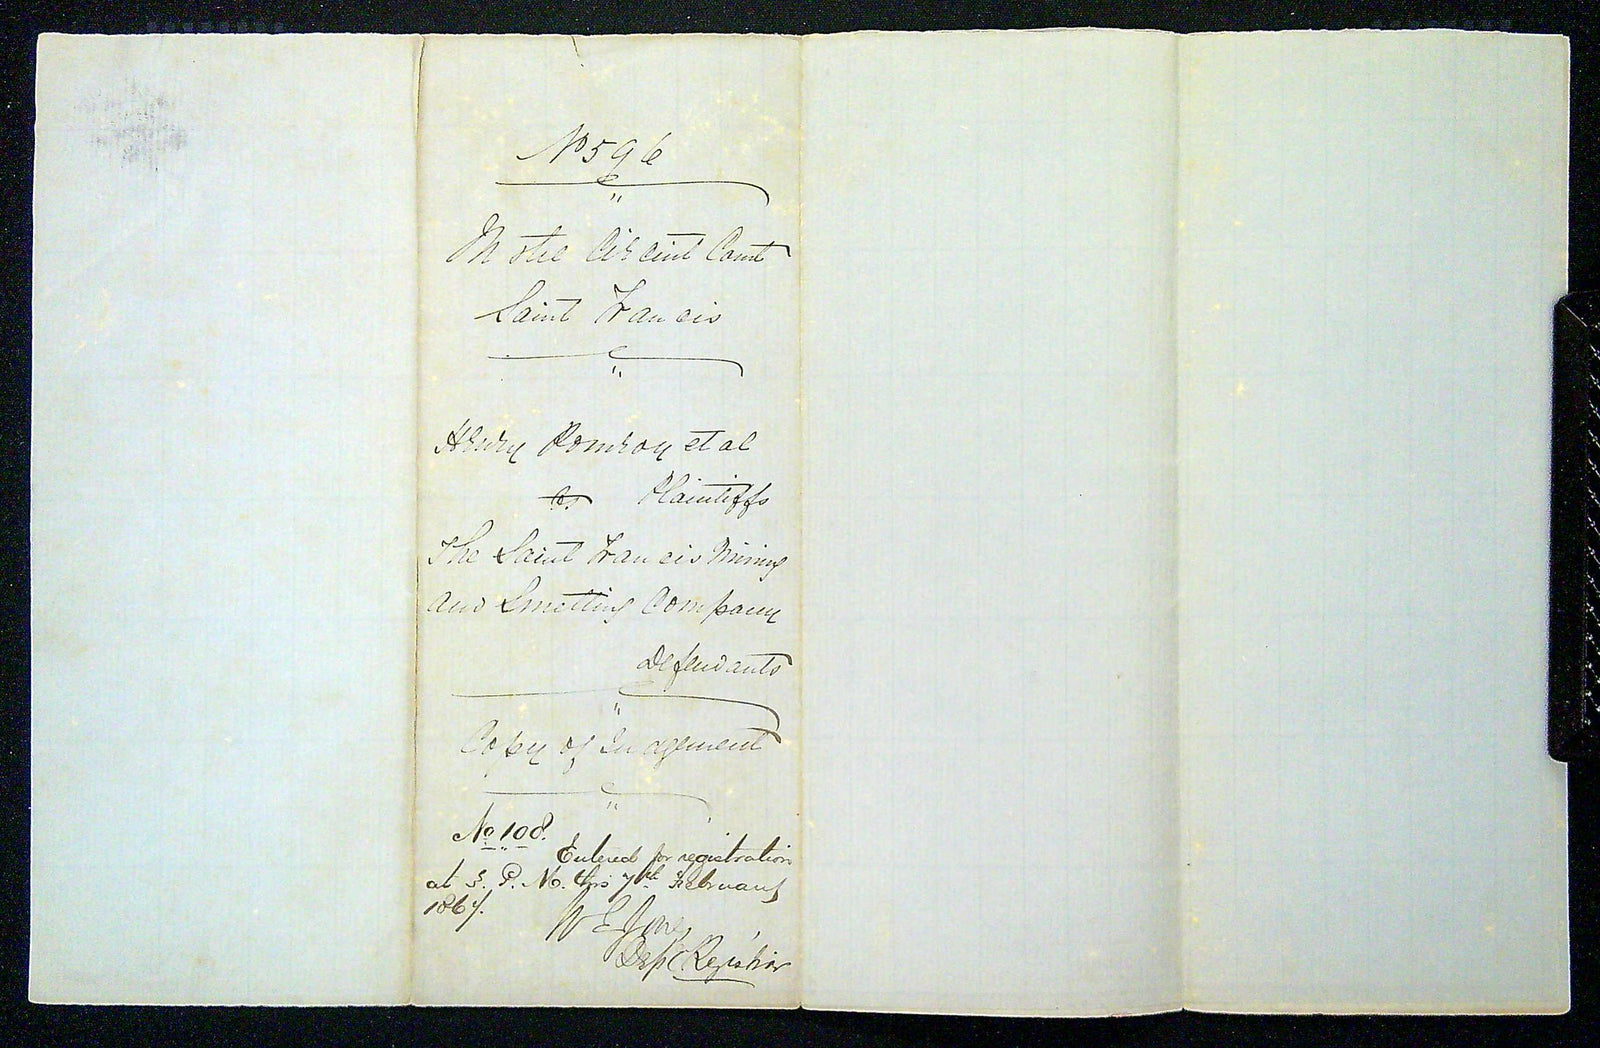 No 596
In the Circuit Court
Saint Francis
Henry Pomroy et al
vs Plaintiffs
The Saint Francis Mining
and Smelting Company
Defendants
Copy of Judgement
No 108.
Entered for registration
at 3. P. M. this 7th February
1867.
W E Jones
Dep. Registrar